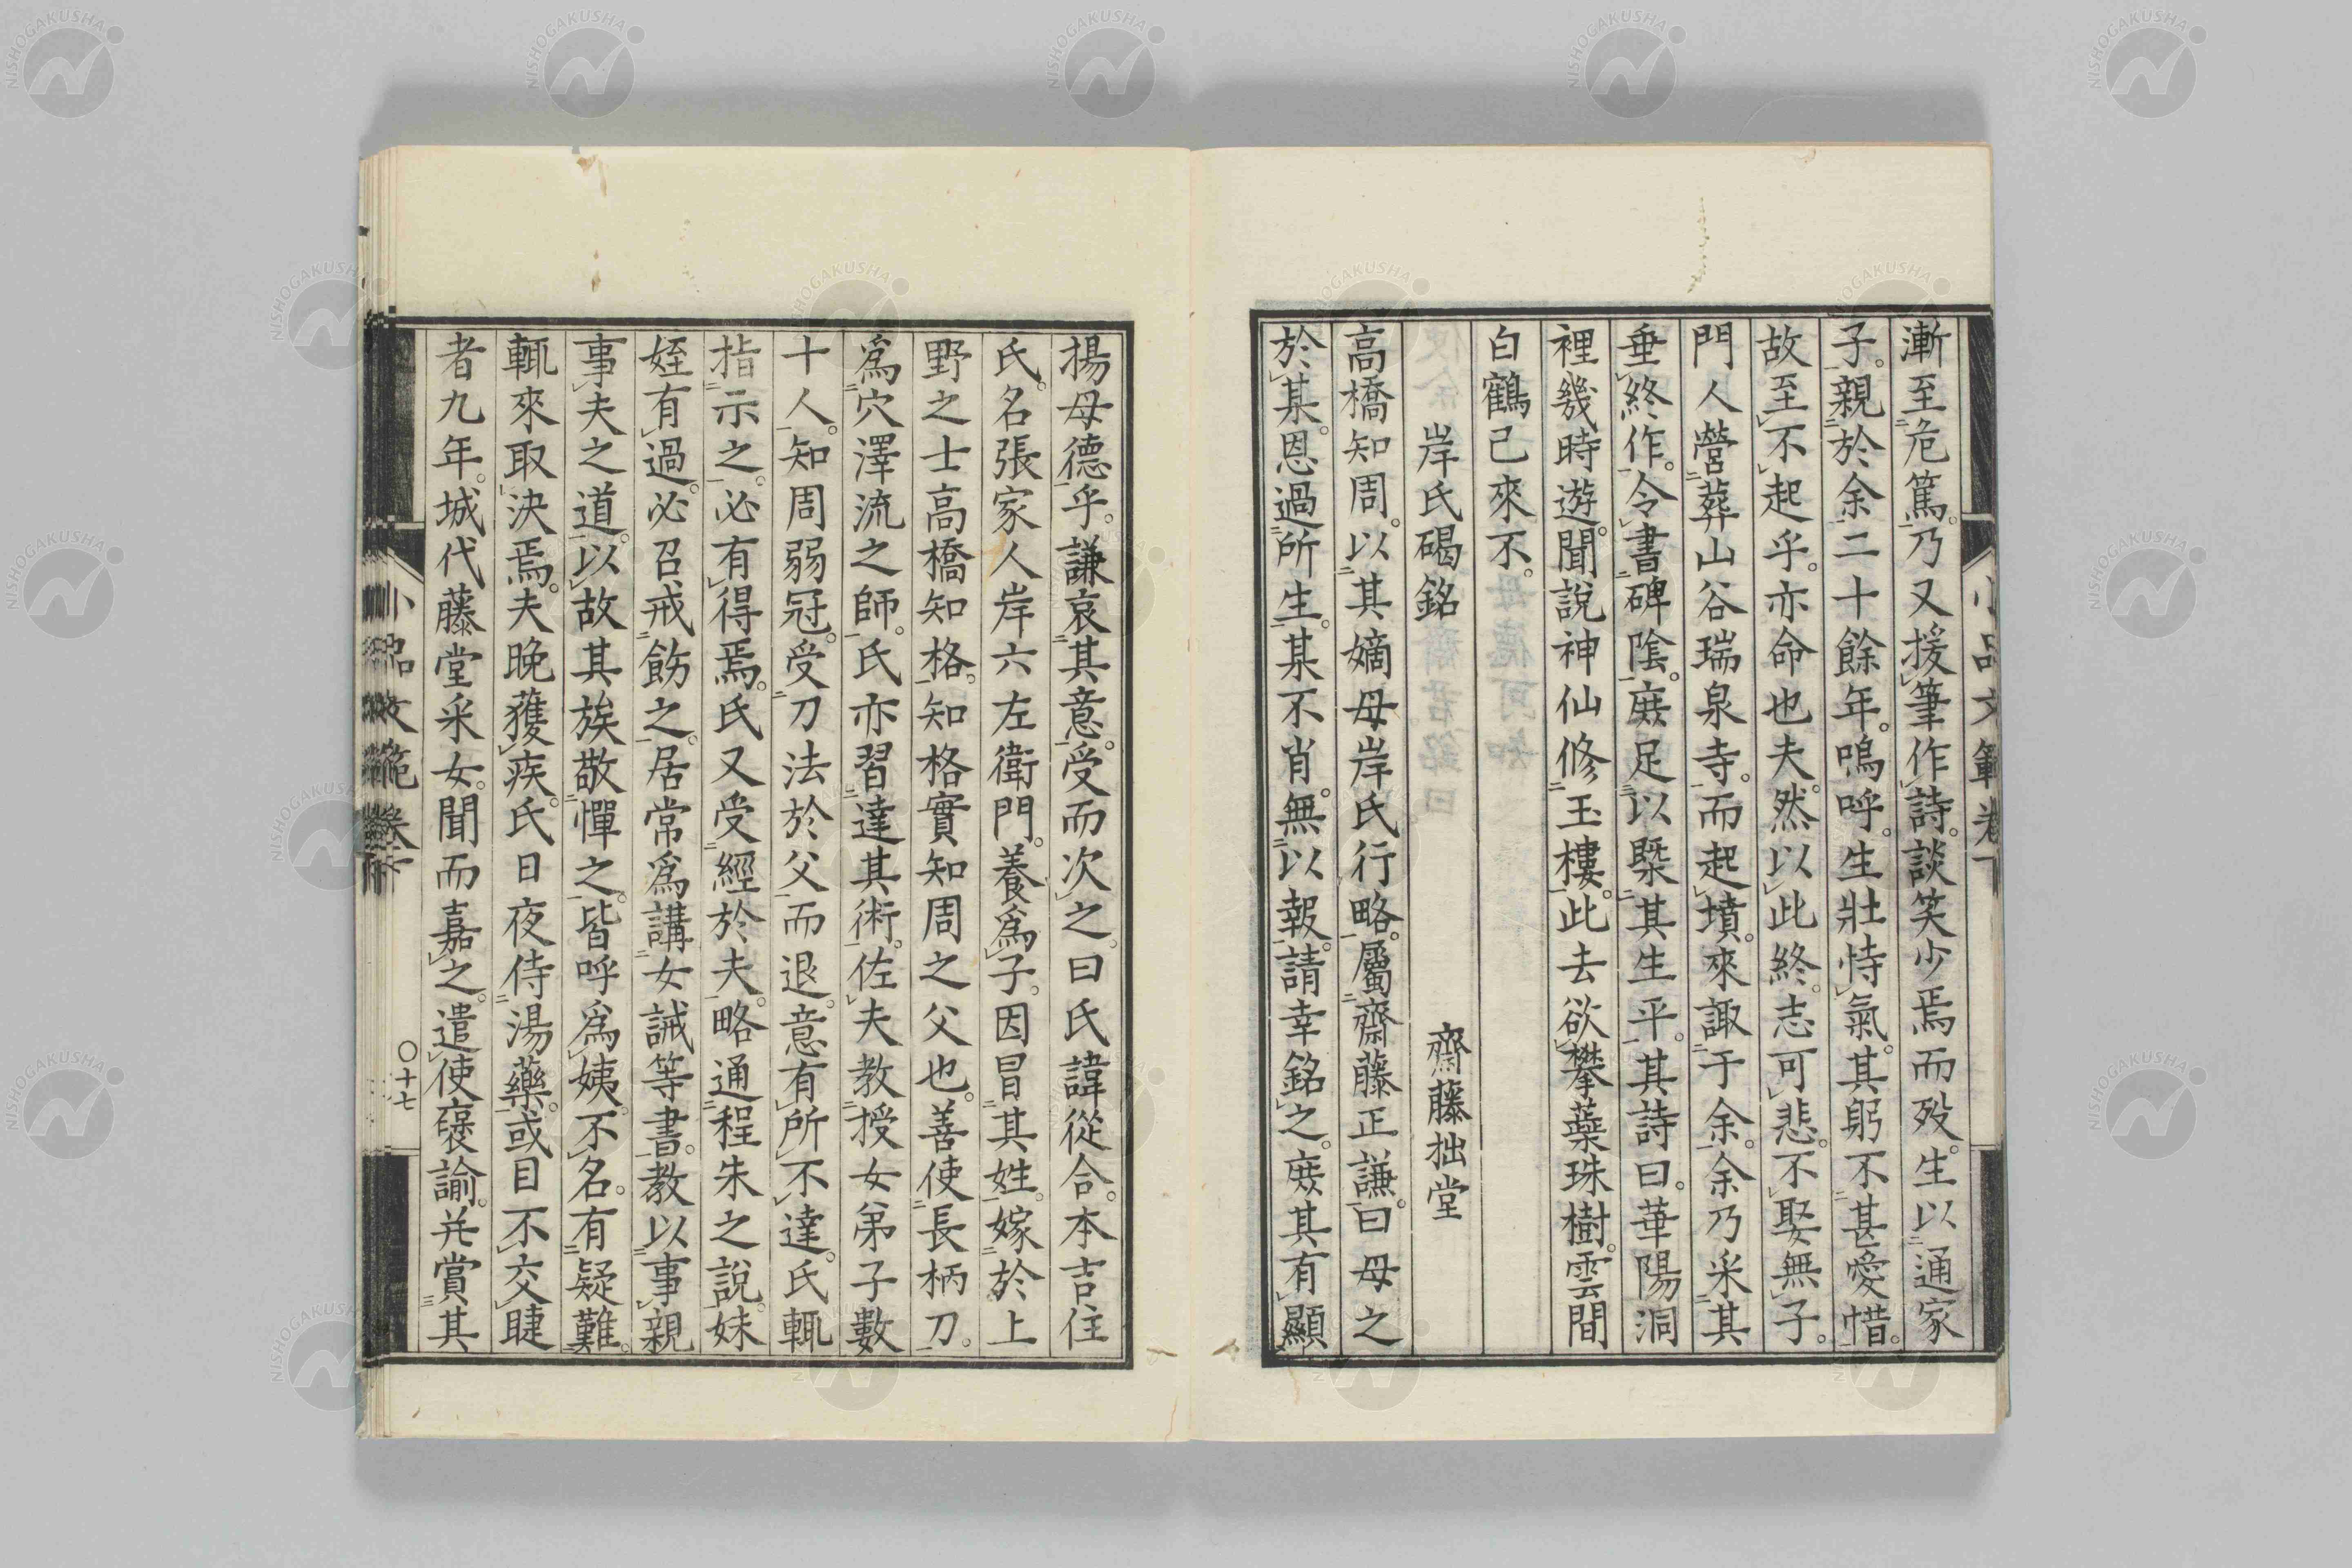 漸至危篤。乃又援筆作詩。談笑少焉而歿。生以通家
子。親於余二十餘年。嗚呼。生壯恃氣。其躬不甚愛惜。
故至不起乎。亦命也夫。然以此終。志可悲。不娶無子。
門人營葬山谷瑞泉寺。而起墳。來諏于余。余乃采其
垂終作。令書碑陰。庶足以槩其生平。其詩曰。華陽洞
裡幾時遊。聞說神仙修玉樓。此去欲攀蘂珠樹。雲間
白鶴已來不。
岸氏碣銘 齋藤拙堂
高橋知周。以其嫡母岸氏行略。屬齋藤正謙。曰母之
於某。恩過所生。某不肖。無以報。請幸銘之。庶其有顯
揚母德乎。謙哀其意。受而次之。曰氏諱從合。本吉住
氏。名張家人岸六左衛門。養爲子。因冒其姓。嫁於上
野之士高橋知格。知格實知周之父也。善使長柄刀。
爲穴澤流之師。氏亦習達其術。佐夫教授女弟子數
十人。知周弱冠。受刀法於父而退。意有所不達。氏輒
指示之。必有得焉。氏又受經於夫。略通程朱之說。妹
姪有過。必召戒飭之。居常爲講女誡等書。教以事親
事夫之道。以故其族敬憚之。皆呼爲姨。不名。有疑難。
輒來取決焉。夫晚獲疾。氏日夜侍湯藥。或目不交睫
者九年。城代藤堂采女。聞而嘉之。遣使襃諭。并賞其
小品文範卷下
〇十七
小品文範卷下
NISHOGAKUSHA